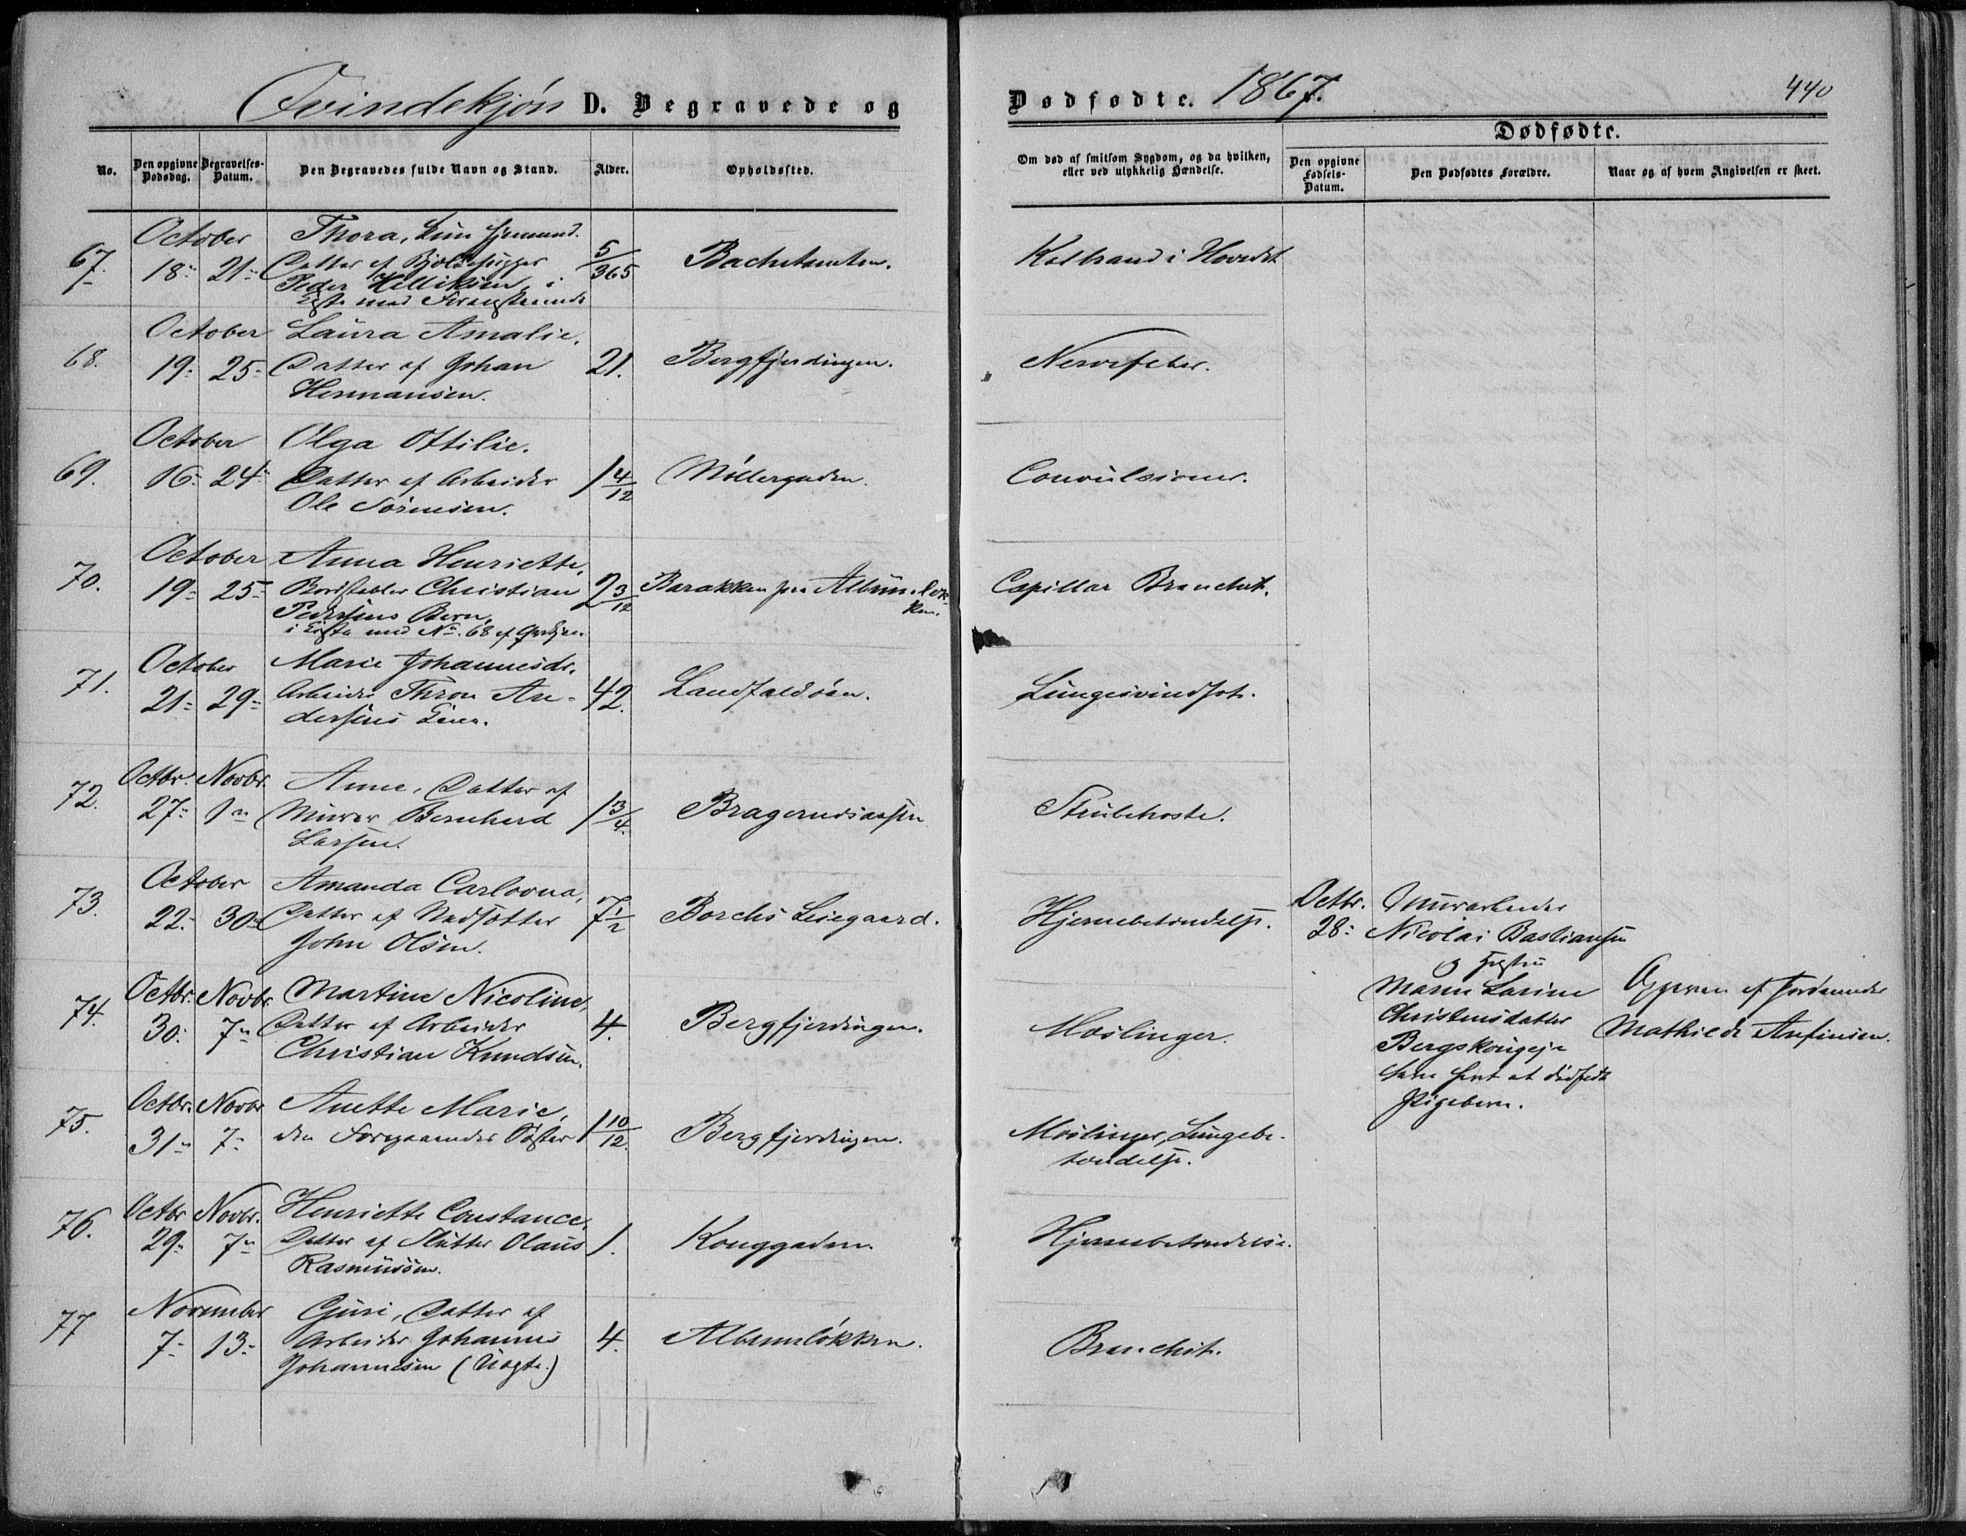 Qvindekjøn D. Begravede og
Dødfødte. 1867. 440
No.
Den opgivne Dødsdag.
Begravelses-Datum.
Den Begravedes fulde Navn og Stand.
Alder.
Opholdssted.
Om død af smitsom Sygdom, og da hvilken,
eller ved ulykkelig Hændelse.
Dødfødte.
Den opgivne Fødsels-Datum.
Den Dødfødtes Forældre.
Naar og af hvem Angivelsen er skeet.
67.
October
18- 21-
Thora,
Datter af
Peder i
Kiste med
5/365
Koldbrand i Hovedet
68.
October
19- 25-
Laura Amalie,
Datter af Johan
Hermansen.
21.
Bergfjerdingen.
Nervefeber.
69.
October
16- 24-
Olga Ottilie.
Datter af Arbeider
Ole Sørensen.
1 4/12
Møllergaden.
Convulsioner.
70.
October
19- 25-
Anna Henriette,
Bordstabler Christian
Pedersens Barn,
i Kiste med No. 68 af
2 3/12
Barakken paa Albumløk-
ken.
Capillær Bronchit.
71.
October
21- 29-
Marie Johannesdr.
Arbeider Thron An-
dersens
42.
Landfaldøen.
Lungesvindsot.
72.
Octbr. Novbr.
27- 1-
Anne, Datter af
Murer Bernhard
Larsen.
1 3/4.
Bragernesaasen
Strubehoste.
73.
October
22. 30-
Amanda Carlovna,
Datter af Nodsætter
John Olsen.
7 1/2
Borchs Leiegaard.
Hjernebetændelse.
Octbr.
28-
Murarbeider
Nicolai Bastiansen
og Hustru
Maren Larine
Christensdatter
Bergskougeje
have havt et dødfødt
Pigebarn.
Opgiven af Jordemoder
Mathilde Anfinsen.
74.
Octbr. Novbr.
30. 7-
Martine Nicoline,
Datter af Arbeider
Christian Knudsen.
4.
Bergfjerdingen.
Mæslinger.
75.
Octbr. Novbr
31- 7-
Anette Marie,
den Foregaaendes Søster
1 10/12.
Bergfjerdingen.
Mæslinger, Lungebe-
tændelse.
76.
Octbr Novbr.
29- 7-
Henriette Constance,
Datter af Slutter Olaus
Rasmussen.
1.
Konggaden.
Hjernebetændelse.
77
November
7- 13-
Guri, Datter af
Arbeider Johannes
Johannesen (Uægte.)
4.
Albumløkken.
Bronchit.